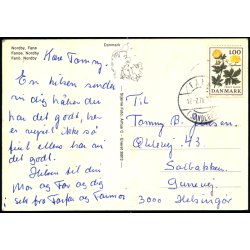 Nordby, Fanø
Fanoe, Nordby
Fanö, Nordby
Danmark
1.00
DANMARK
Kære Tommy.
En hilsen sende
vi dig håber du
har det godt, her
er vejret ikke så
fint ellers har vi
det godt.
Hilsen til din
Mor og Far og dig
selv fra Farfar og Farmor
Til
Tommy B. Jensen
43
Solbakken
3000 Helsingør